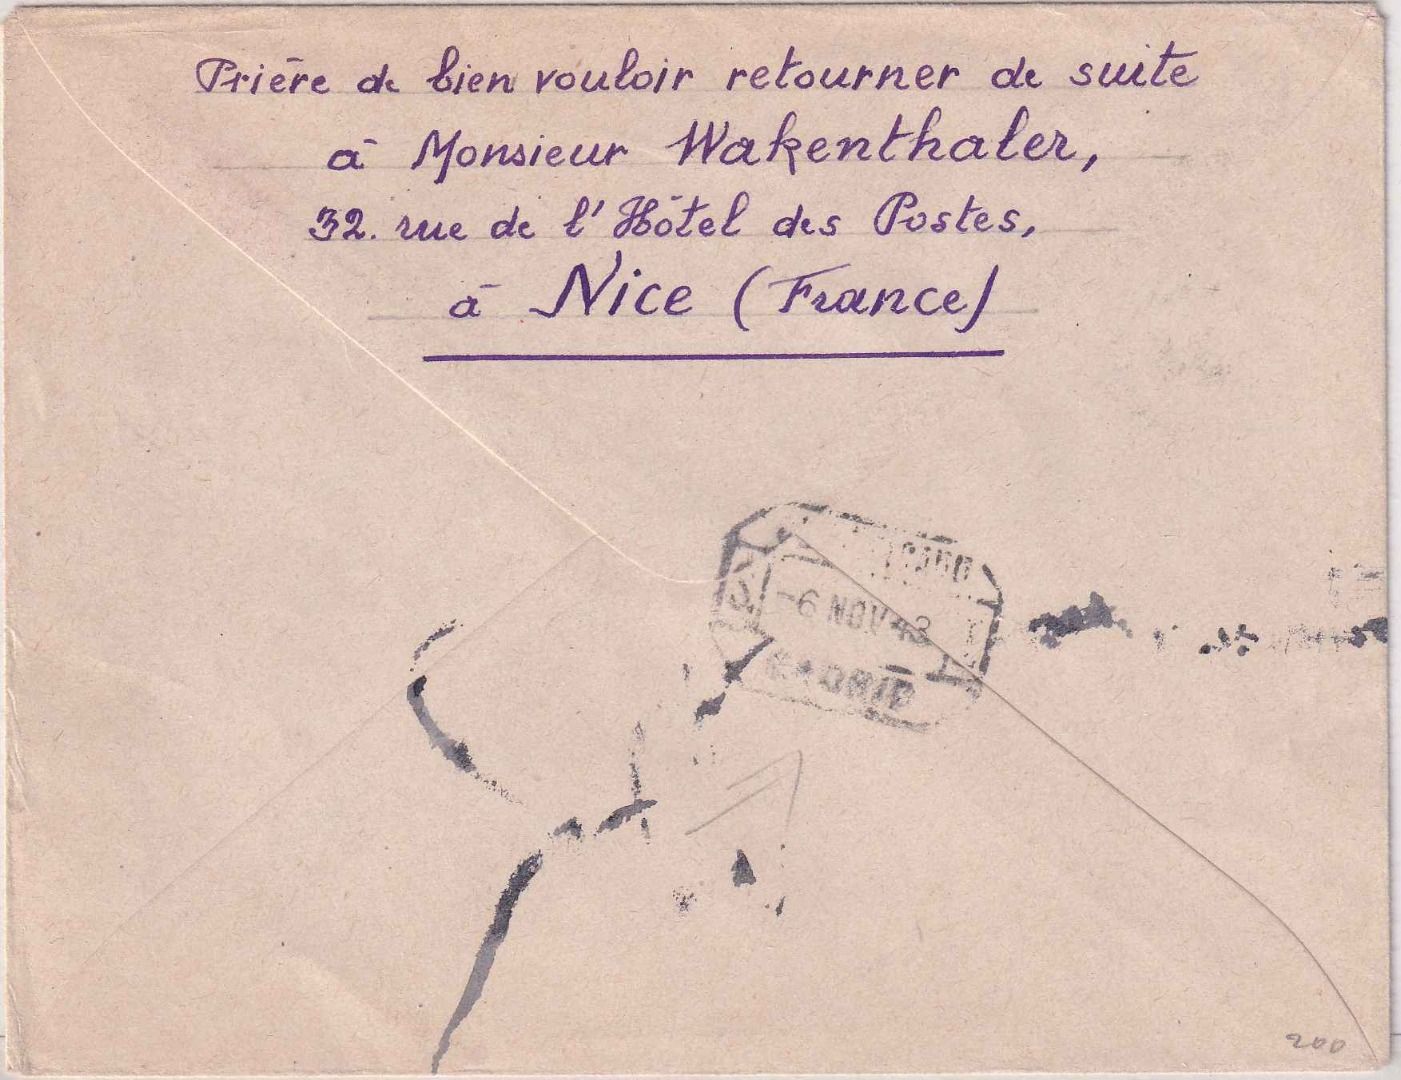 Prière de bien vouloir retourner de suite
à Monsieur Wakenthaler,
32. rue de l'Hôtel des Postes,
à Nice (France)
-6 NOV 43
MADRID
200